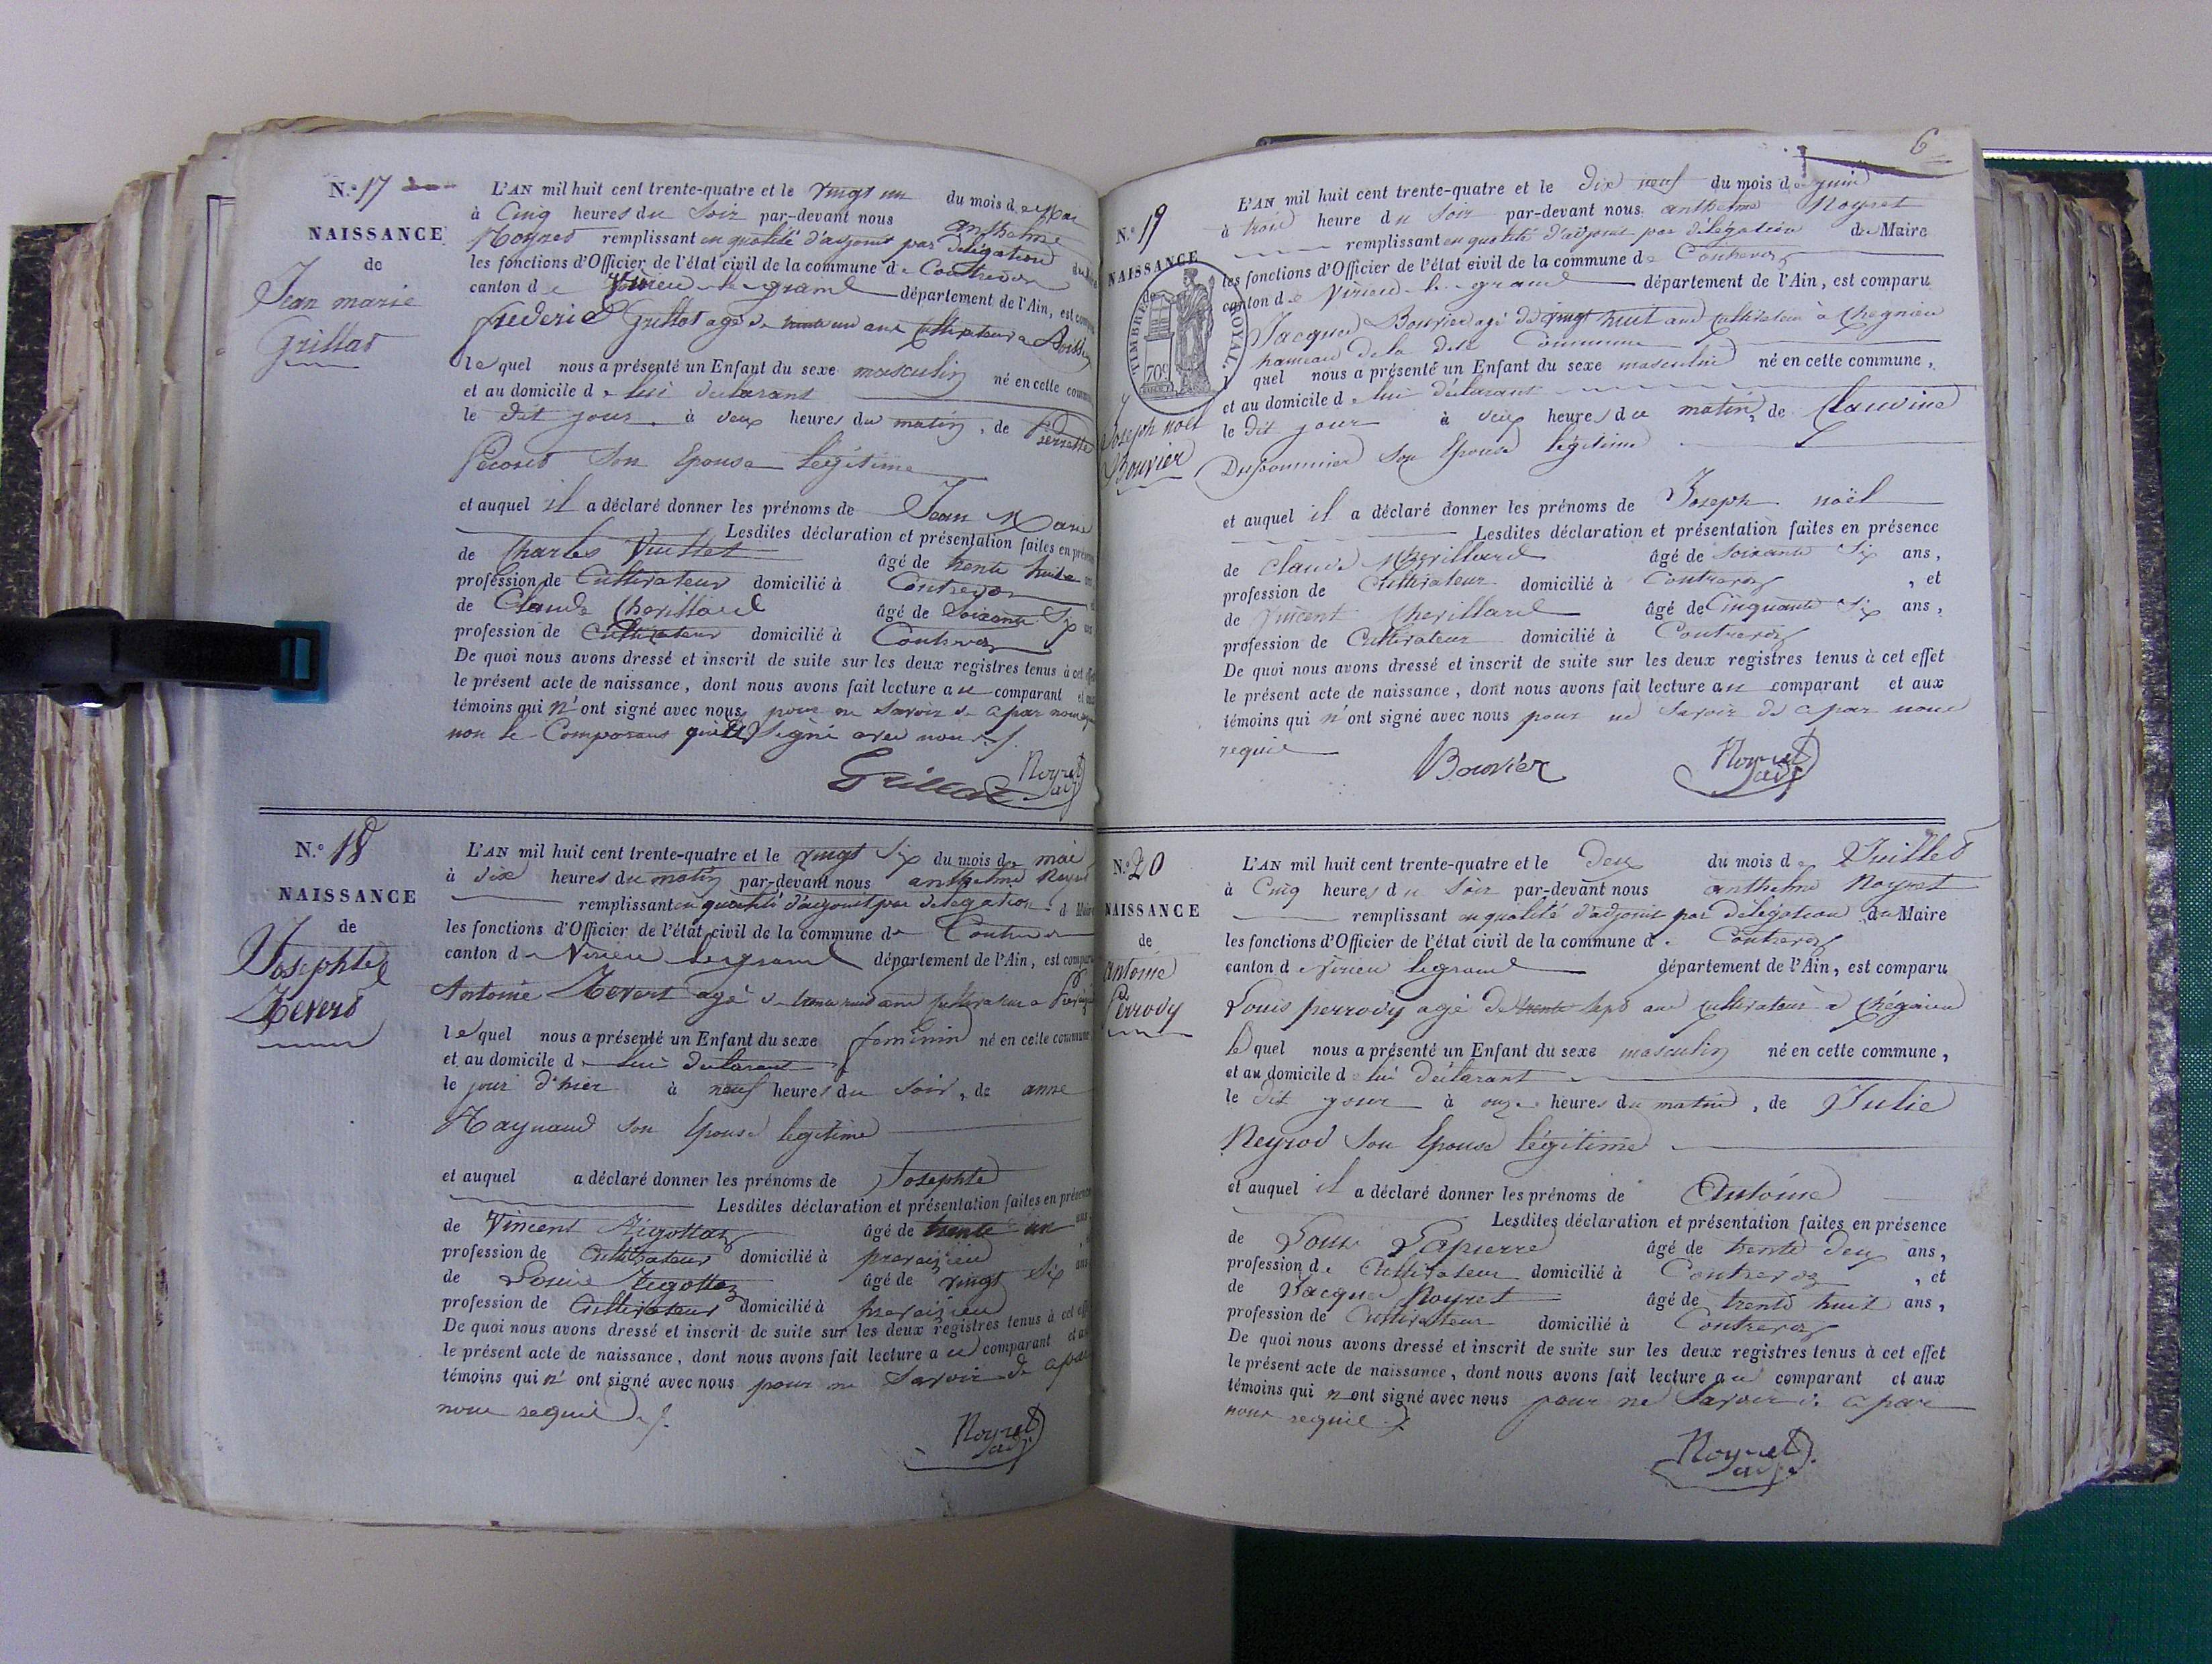 N.º 17
NAISSANCE
de
Jean marie
Grillat
L'AN mil huit cent trente-quatre et le vingt un du mois de mai
à Cinq heures du Soir par-devant nous anthelme
Noyret remplissant en qualité d'adjoint par délégation du
les fonctions d'Officier de l'état civil de la commune de Contrevoz
canton de Virieu le grand département de l'Ain, est
frederic Grillat agé de trente un ans Cultivateur a
le quel nous a présenté un Enfant du sexe masculin né en cette
et au domicile de lui déclarant
le dit jour à deux heures du matin, de Pierrette
son Epouse légitime
et auquel il a déclaré donner les prénoms de Jean Marie
Lesdites déclaration et présentation faites en
de Charles Vuillet âgé de trente huit
profession de Cultivateur domicilié à Contrevoz
de Claude Chevillard âgé de Soixante Six
profession de Cultivateur domicilié à Contrevoz
De quoi nous avons dressé et inscrit de suite sur les deux registres tenus à cet
le présent acte de naissance, dont nous avons fait lecture au comparant et
témoins qui n'ont signé avec nous pour ne Savoir de ce par nous
non le Comparant qui a Signé avec nous
Grillat Noyret adj
N.º 18
NAISSANCE
de
Josephte
Revert
L'AN mil huit cent trente-quatre et le vingt Six du mois de mai
à dix heures du matin par-devant nous anthelme Noyret
remplissant en qualité d'adjoint par délégation d Maire
les fonctions d'Officier de l'état civil de la commune de Contrevoz
canton de Virieu le grand département de l'Ain, est
Antoine Revert agé de ans cultivateur a
le quel nous a présenté un Enfant du sexe feminin né en cette commune
et au domicile de lui déclarant
le jour d'hier à neuf heures du Soir, de anne
Raynaud son Epouse légitime
et auquel a déclaré donner les prénoms de Josephte
Lesdites déclaration et présentation faites en
de Vincent Rigottaz âgé de trente un ans
profession de Cultivateur domicilié à preveizieu
de Louis Rigottaz âgé de vingt Six ans
profession de Cultivateur domicilié à preveizieu
De quoi nous avons dressé et inscrit de suite sur les deux registres tenus à cet
le présent acte de naissance, dont nous avons fait lecture au comparant et
témoins qui n'ont signé avec nous pour ne Savoir de ce par
nous requis
Noyret adj
6
N.º 19
NAISSANCE
de
TIMBRE ROYAL.
70c
Joseph noël
Bouvier
L'AN mil huit cent trente-quatre et le dix neuf du mois de juin
à trois heure du Soir par-devant nous anthelme Noyret
remplissant en qualité d'adjoint par délégation du Maire
les fonctions d'Officier de l'état civil de la commune de Contrevoz
canton de Virieu le grand département de l'Ain, est comparu
Jacques Bouvier agé de vingt huit ans cultivateur à Chegnieu
hameau de la dite Commune
l quel nous a présenté un Enfant du sexe masculin né en cette commune,
et au domicile de lui déclarant
le dit jour à deux heures du matin, de Claudine
son Epouse légitime
et auquel il a déclaré donner les prénoms de Joseph noël
Lesdites déclaration et présentation faites en présence
de Claude Chevillard âgé de Soixante Six ans,
profession de Cultivateur domicilié à Contrevoz, et
de Vincent Chevillard âgé de Cinquante Six ans,
profession de Cultivateur domicilié à Contrevoz
De quoi nous avons dressé et inscrit de suite sur les deux registres tenus à cet effet
le présent acte de naissance, dont nous avons fait lecture au comparant et aux
témoins qui n'ont signé avec nous pour ne Savoir de ce par nous
requis
Bouvier Noyret adj
N.º 20
NAISSANCE
de
antoine
Perrody
L'AN mil huit cent trente-quatre et le Deux du mois de Juillet
à Cinq heures du Soir par-devant nous anthelme Noyret
remplissant en qualité d'adjoint par délégation du Maire
les fonctions d'Officier de l'état civil de la commune d. Contrevoz
canton de Virieu le grand département de l'Ain, est comparu
Louis perrody agé de trente Sept ans cultivateur a Chégnieu
le quel nous a présenté un Enfant du sexe masculin né en cette commune,
et au domicile de lui déclarant
le dit jour à onze heures du matin, de Julie
Neyrod Son Epouse légitime
et auquel il a déclaré donner les prénoms de Antoine
Lesdites déclaration et présentation faites en présence
de Louis Lapierre âgé de trente deux ans,
profession de Cultivateur domicilié à Contrevoz, et
de Jacques Noyret âgé de trente huit ans,
profession de Cultivateur domicilié à Contrevoz
De quoi nous avons dressé et inscrit de suite sur les deux registres tenus à cet effet
le présent acte de naissance, dont nous avons fait lecture au comparant et aux
témoins qui n'ont signé avec nous pour ne Savoir de ce par
nous requis
Noyret adj